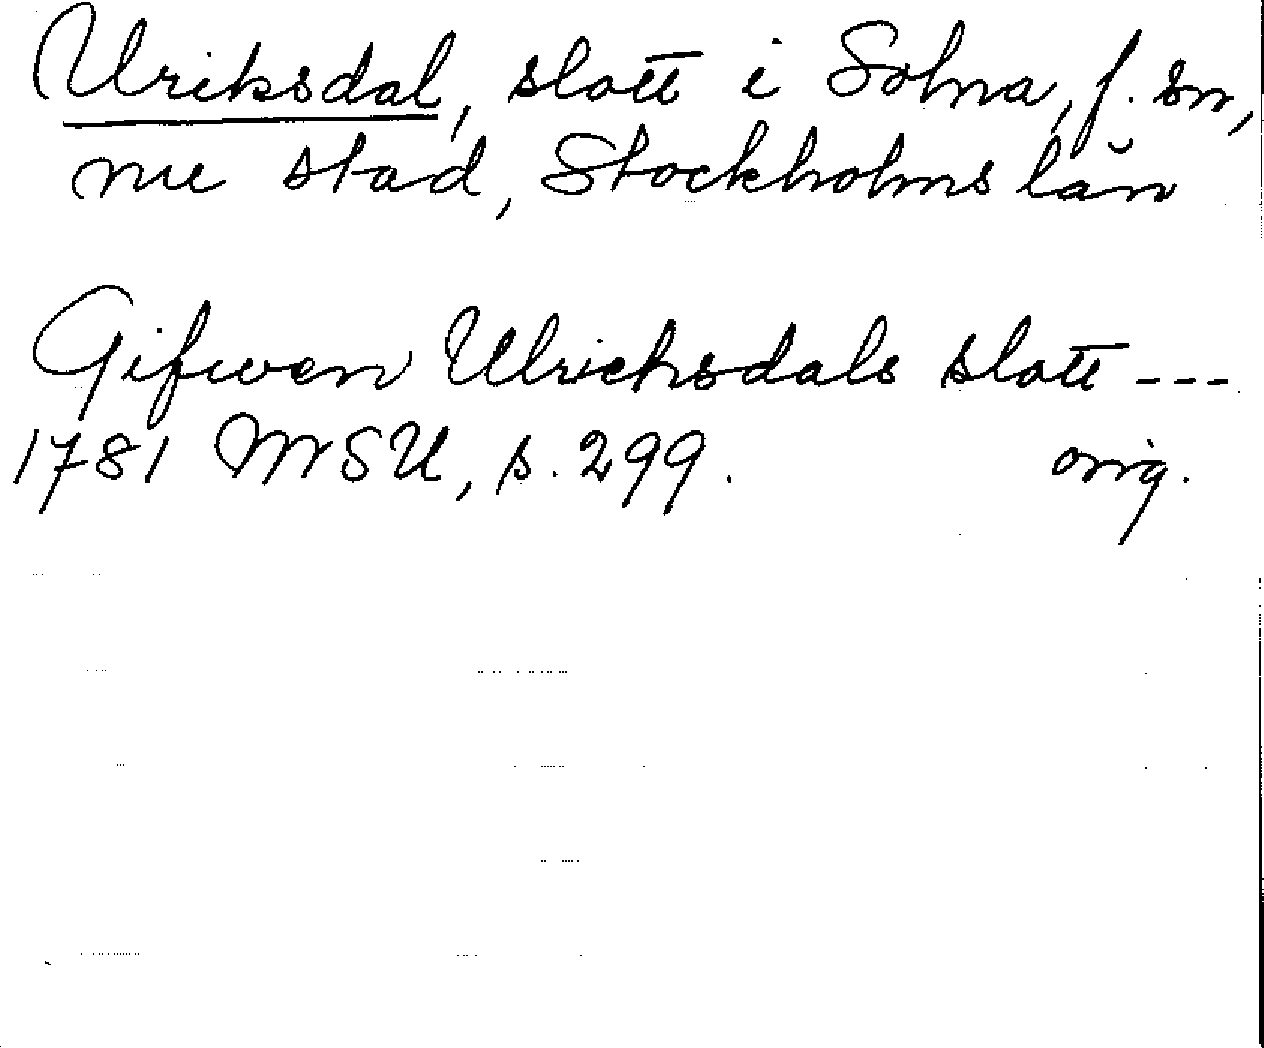 Ulriksdal, slott i Solna, f. sn,
nu stad, Stockholms län
Gifwen Ulrichsdals slott ---
1781 MSU, s. 299. orig.